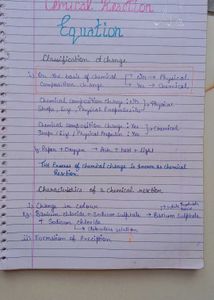 Chemical Reaction
Equation
Classification of change
1) On the basis of chemical → No → Physical
Composition Change → Yes → Chemical
Chemical composition change : No } Physical
Shape, Size, Physical Properties : Yes
Chemical composition change : Yes } Chemical
Shape / Size / Physical Properties : Yes
Eg Paper + Oxygen → Ash + heat + light
The Process of chemical change is known as chemical
Reaction.
Characteristics of a chemical reaction
i) Change in colour
Eg: Barium chloride + Sodium Sulphate → Barium Sulphate
+ Sodium chloride
→ Colourless solution
ii) Formation of Precipitation